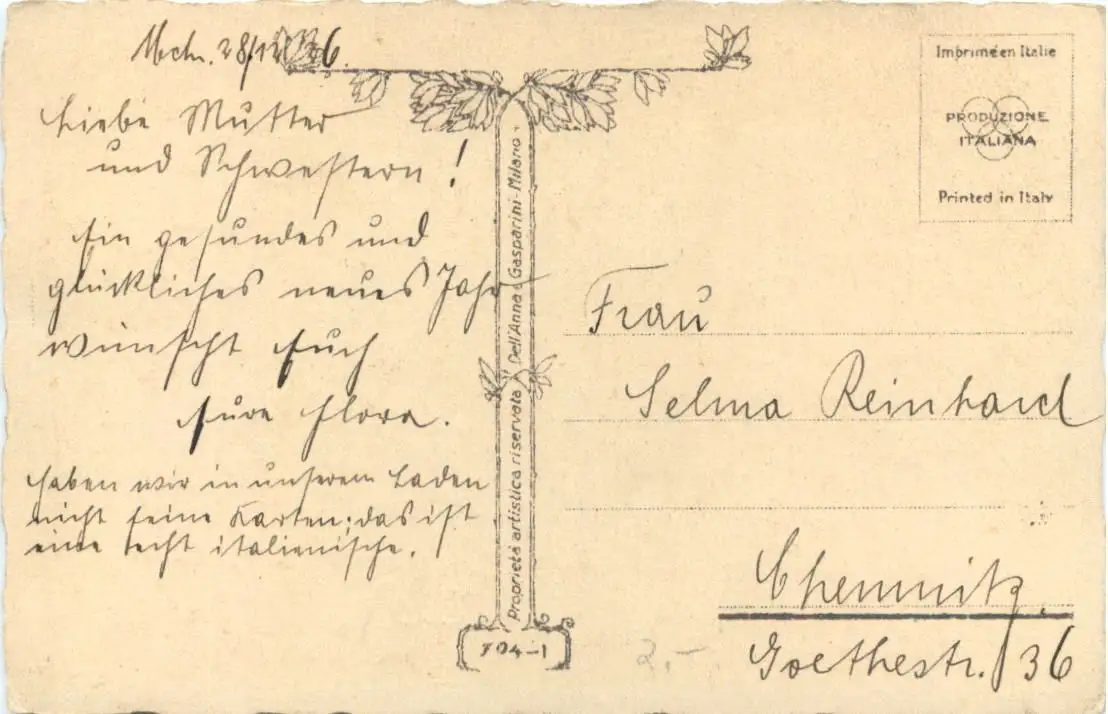 Mchn. 28/12 26.
Liebe Mutter
und Schwestern!
Ein gesundes und
glückliches neues Jahr
wünscht Euch
Eure Flora.
Haben wir in unserem Laden
nicht feine Karten; das ist
eine echt italienische.
Proprietà artistica riservata Dell'Anna & Gasparini - Milano -
704-1
Imprimé en Italie
PRODUZIONE
ITALIANA
Printed in Italy
Frau
Selma Reinhard
Chemnitz.
Goethestr. 36
2,-